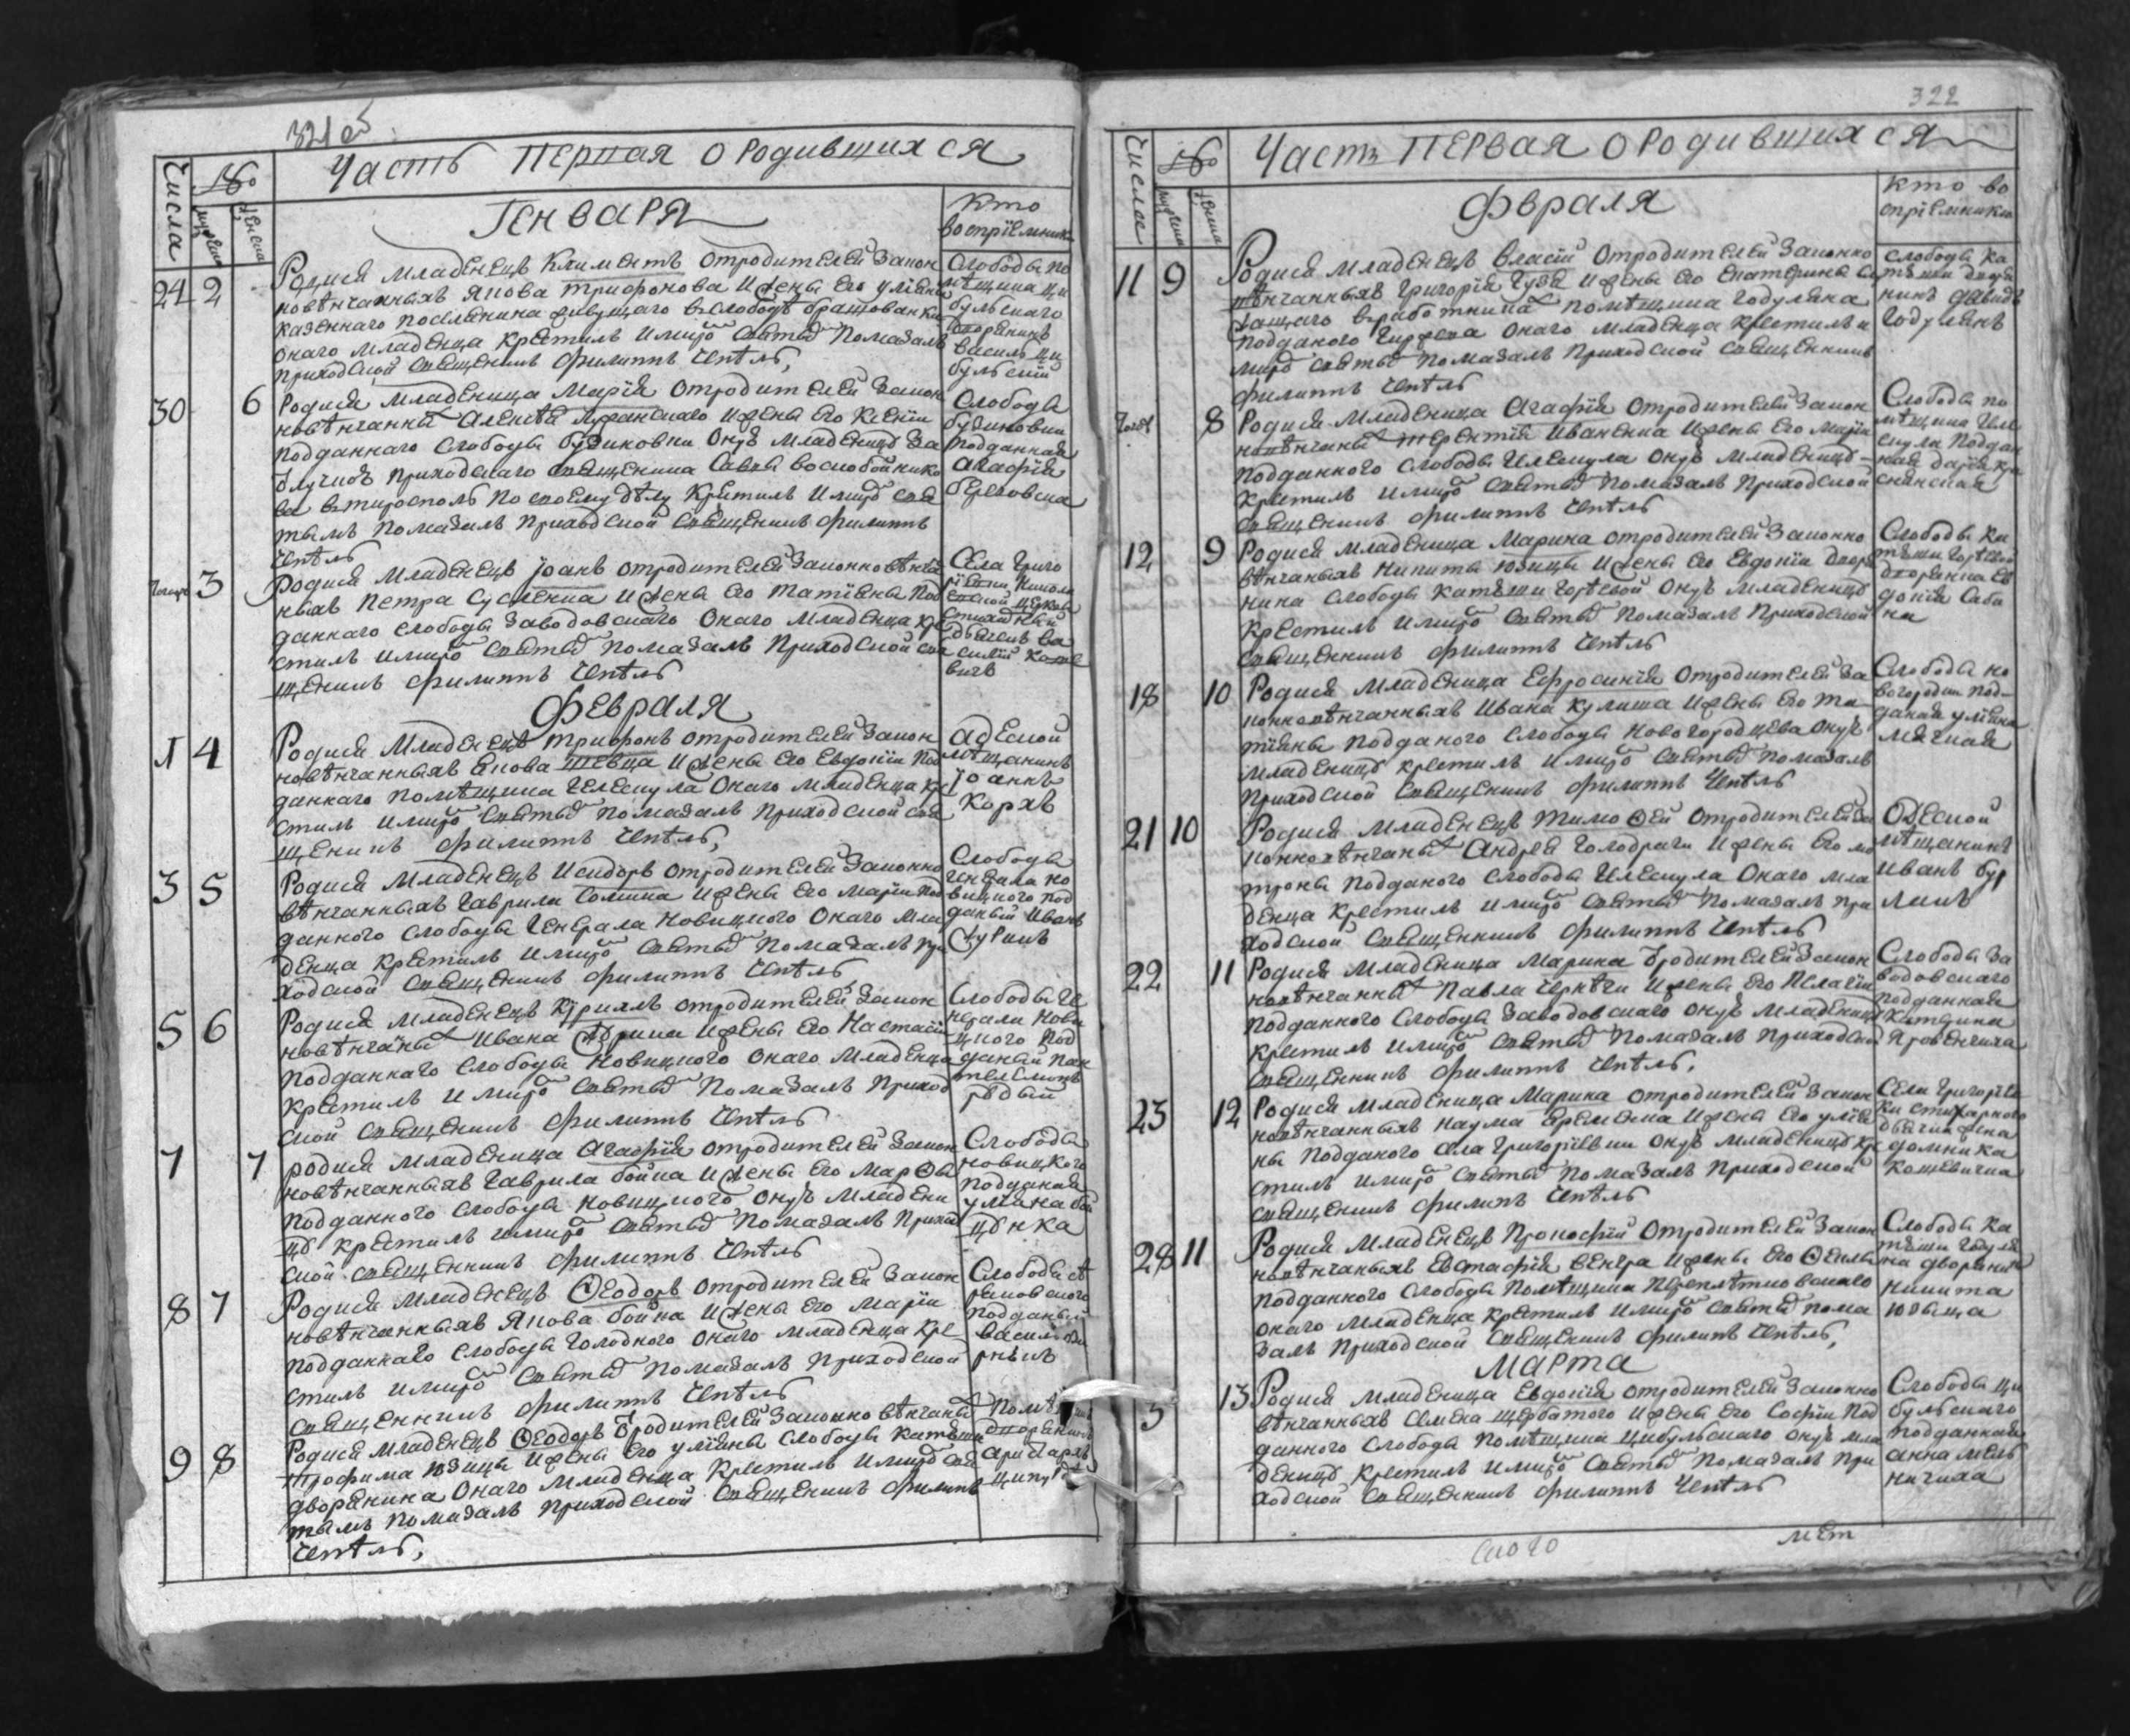 321 об
Часть Первая о Родившихся
Числа
Генваря
Кто
воспрiемники
24 2
Родися младенецъ Климентъ от родителей закон
новѣнчанныхъ Якова Трифонова и жены его Улiаны
казеннаго поселянина живущаго в слободѣ
онаго младенца крестилъ и мѵро святы помазалъ
приходской священникъ Филиппъ Чепѣль,
Слободы по
мѣщика Ци
бульскаго
дворянинъ
Василь Ци
бульскiй
30 6
Родися младеница Марiя от родителей закон
новѣнчаны Алексѣя и жены его Ксенiи
подданнаго слободы Будиковки оную младеницу за
приходскаго священника Савы
в Тирасполь по своему дѣлу крестилъ и мѵро свя
тымъ помазалъ приходской священникъ Филиппъ
Чепѣль
Слободы
Будиковки
подданная
Агафiя
Береговска
3
Родися младенецъ Iоанъ от родителей законновѣнча
ныхъ Петра Сусленка и жены его Татiяны под
даннаго слободы Заводовскаго онаго младенца кре
стилъ и мѵро святы помазалъ приходской свя
щеникъ Филиппъ Чепѣль
Села Григо
рiевки Никола
евской церкви
стихарный
дьячекъ Ва
силiй Коще
вичъ
Февраля
1 4
Родися младенецъ Трифонъ от родителей закон
новѣнчанныхъ Якова Шевца и жены его Евдокiи под
даннаго помѣщика Гелескула онаго младенца кре
стилъ и мѵро святы помазалъ приходской свя
щеникъ Филиппъ Чепѣль,
Адеской
мѣщанинъ
Iоаннъ
Коржъ
3 5
Родися младенецъ Исидоръ от родителей законно
вѣнчанныхъ Гаврила Сомика и жены его Марiи под
данного слободы генерала Новицкого онаго мла
денца крестилъ и мѵро святы помазалъ при
ходской священикъ Филиппъ Чепѣль
Слободы
генерала Но
вицкого под
даный Иванъ
5 6
Родися младенецъ Кѵриллъ от родителей закон
новѣнчаны Ивана и жены его Настасiи
подданнаго слободы Новицкого онаго младенца
крестилъ и мѵро святы помазалъ приход
ской священикъ Филиппъ Чепѣль
Слободы ге
нерала Нови
цкого под
даный Пан
телемонъ
рѣдый
7 7
родися младеница Агафiя от родителей закон
новѣнчанныхъ Гаврила Бойка и жены его Марѳы
подданного слободы Новицкого оную младени
цу крестилъ и мѵро святы помазалъ приход
ской священникъ Филиппъ Чепѣль
Слободы
Новицкого
подданая
Улiяна Бой
цунка
8 7
Родися младенецъ Ѳеодоръ от родителей закон
новѣнчанныхъ Якова Бойка и жены его Марiи
подданнаго слободы Голодного онаго младенца кре
стилъ и мѵро святы помазалъ приходской
священникъ Филиппъ Чепѣль
Слободы
подданый
Василь
9 8
Родися младенецъ Ѳеодоръ родителей законно вѣнчаны
Трофима Юзица и жены его Улiяны слободы Катюши
дворянина онаго младенца крестилъ и мѵро свя
тымъ помазалъ приходской священикъ Филиппъ
Чепѣль,
дворянинъ
322
Часть Первая о Родившихся
Числа
Февраля
Кто во
спрiемники
11 9
Родися младенецъ Власiй от родителей законно
вѣнчанныхъ Григорiя Гуза и жены его Екатерины
помѣщика Годуляна
подданого онаго младенца крестилъ и
мѵро святы помазалъ приходской священникъ
Филиппъ Чепѣль
Слободы Ка
тюши дворя
нинъ Давидъ
Годулянъ
8
Родися младеница Агафiя от родителей закон
новѣнчаны Терентiя Иваненка и жены его Марiи
подданного слободы Гелескула оную младеницу
крестилъ и мѵро святы помазалъ приходской
священникъ Филиппъ Чепѣль
Слободы по
мѣщика Геле
скула поддан
ная Дарiя Кра
снянская
12 9
Родися младеница Марина от родителей законно
вѣнчаныхъ Никиты Юзицы и жены его Евдокiи дворя
нина слободы Катюши оную младеницу
крестилъ и мѵро святы помазалъ приходской
священникъ Филиппъ Чепѣль
Слободы Ка
тюши
дворянка Ев
докiя Саба
на
18 10
Родися младеница Ефросинiя от родителей за
конновѣнчанныхъ Ивана Кулиша и жены его Та
тiяны подданого слободы Новогородцева оную
младеницу крестилъ и мѵро святы помазалъ
приходской священикъ Филиппъ Чепѣль
Слободы Но
вогородцева под
даная Улiяна
21 10
Родися младенецъ Тимоѳей от родителей за
конновѣнчаны Андрея Голодраги и жены его Мо
троны подданого слободы Гелескула онаго мла
денца крестилъ и мѵро святы помазалъ при
ходской священникъ Филиппъ Чепѣль
Одеской
мѣщанинъ
Иванъ Бур
лакъ
22 11
Родися младеница Марина родителей закон
новѣнчаны Павла и жены его Пелагiи
подданного слободы Заводовскаго оную младеницу
крестилъ и мѵро святы помазалъ приходской
священникъ Филиппъ Чепѣль.
Слободы За
водовскаго
подданная
23 12
Родися младеница Марина от родителей закон
новѣнчанныхъ Наума Яременка и жены его Улiя
ны подданого села Григорiевки оную младеницу кре
стилъ и мѵро святы помазалъ приходской
священикъ Филипъ Чепѣль
Села Григорiев
ки стихарного
дьячка жена
Домника
Кощевичка
28 11
Родися младенецъ Прокофiй от родителей закон
новѣнчаныхъ Евстафiя Венгра и жены его Ѳеклы
подданного слободы помѣщика
онаго младенца крестилъ и мѵро святы пома
залъ приходской священикъ Филипъ Чепѣль,
Слободы Ка
тюши Годуля
на дворянинъ
Никита
Юзыца
Марта
5 13
Родися младеница Евдокiя от родителей законно
вѣнчанныхъ Семена Щербатого и жены его Софiи под
данного слободы помѣщика Цибульскаго оную мла
деницу крестилъ и мѵро святы помазалъ при
ходской священникъ Филиппъ Чепѣль
Слободы Ци
бульскаго
подданная
Анна Мель
ничиха